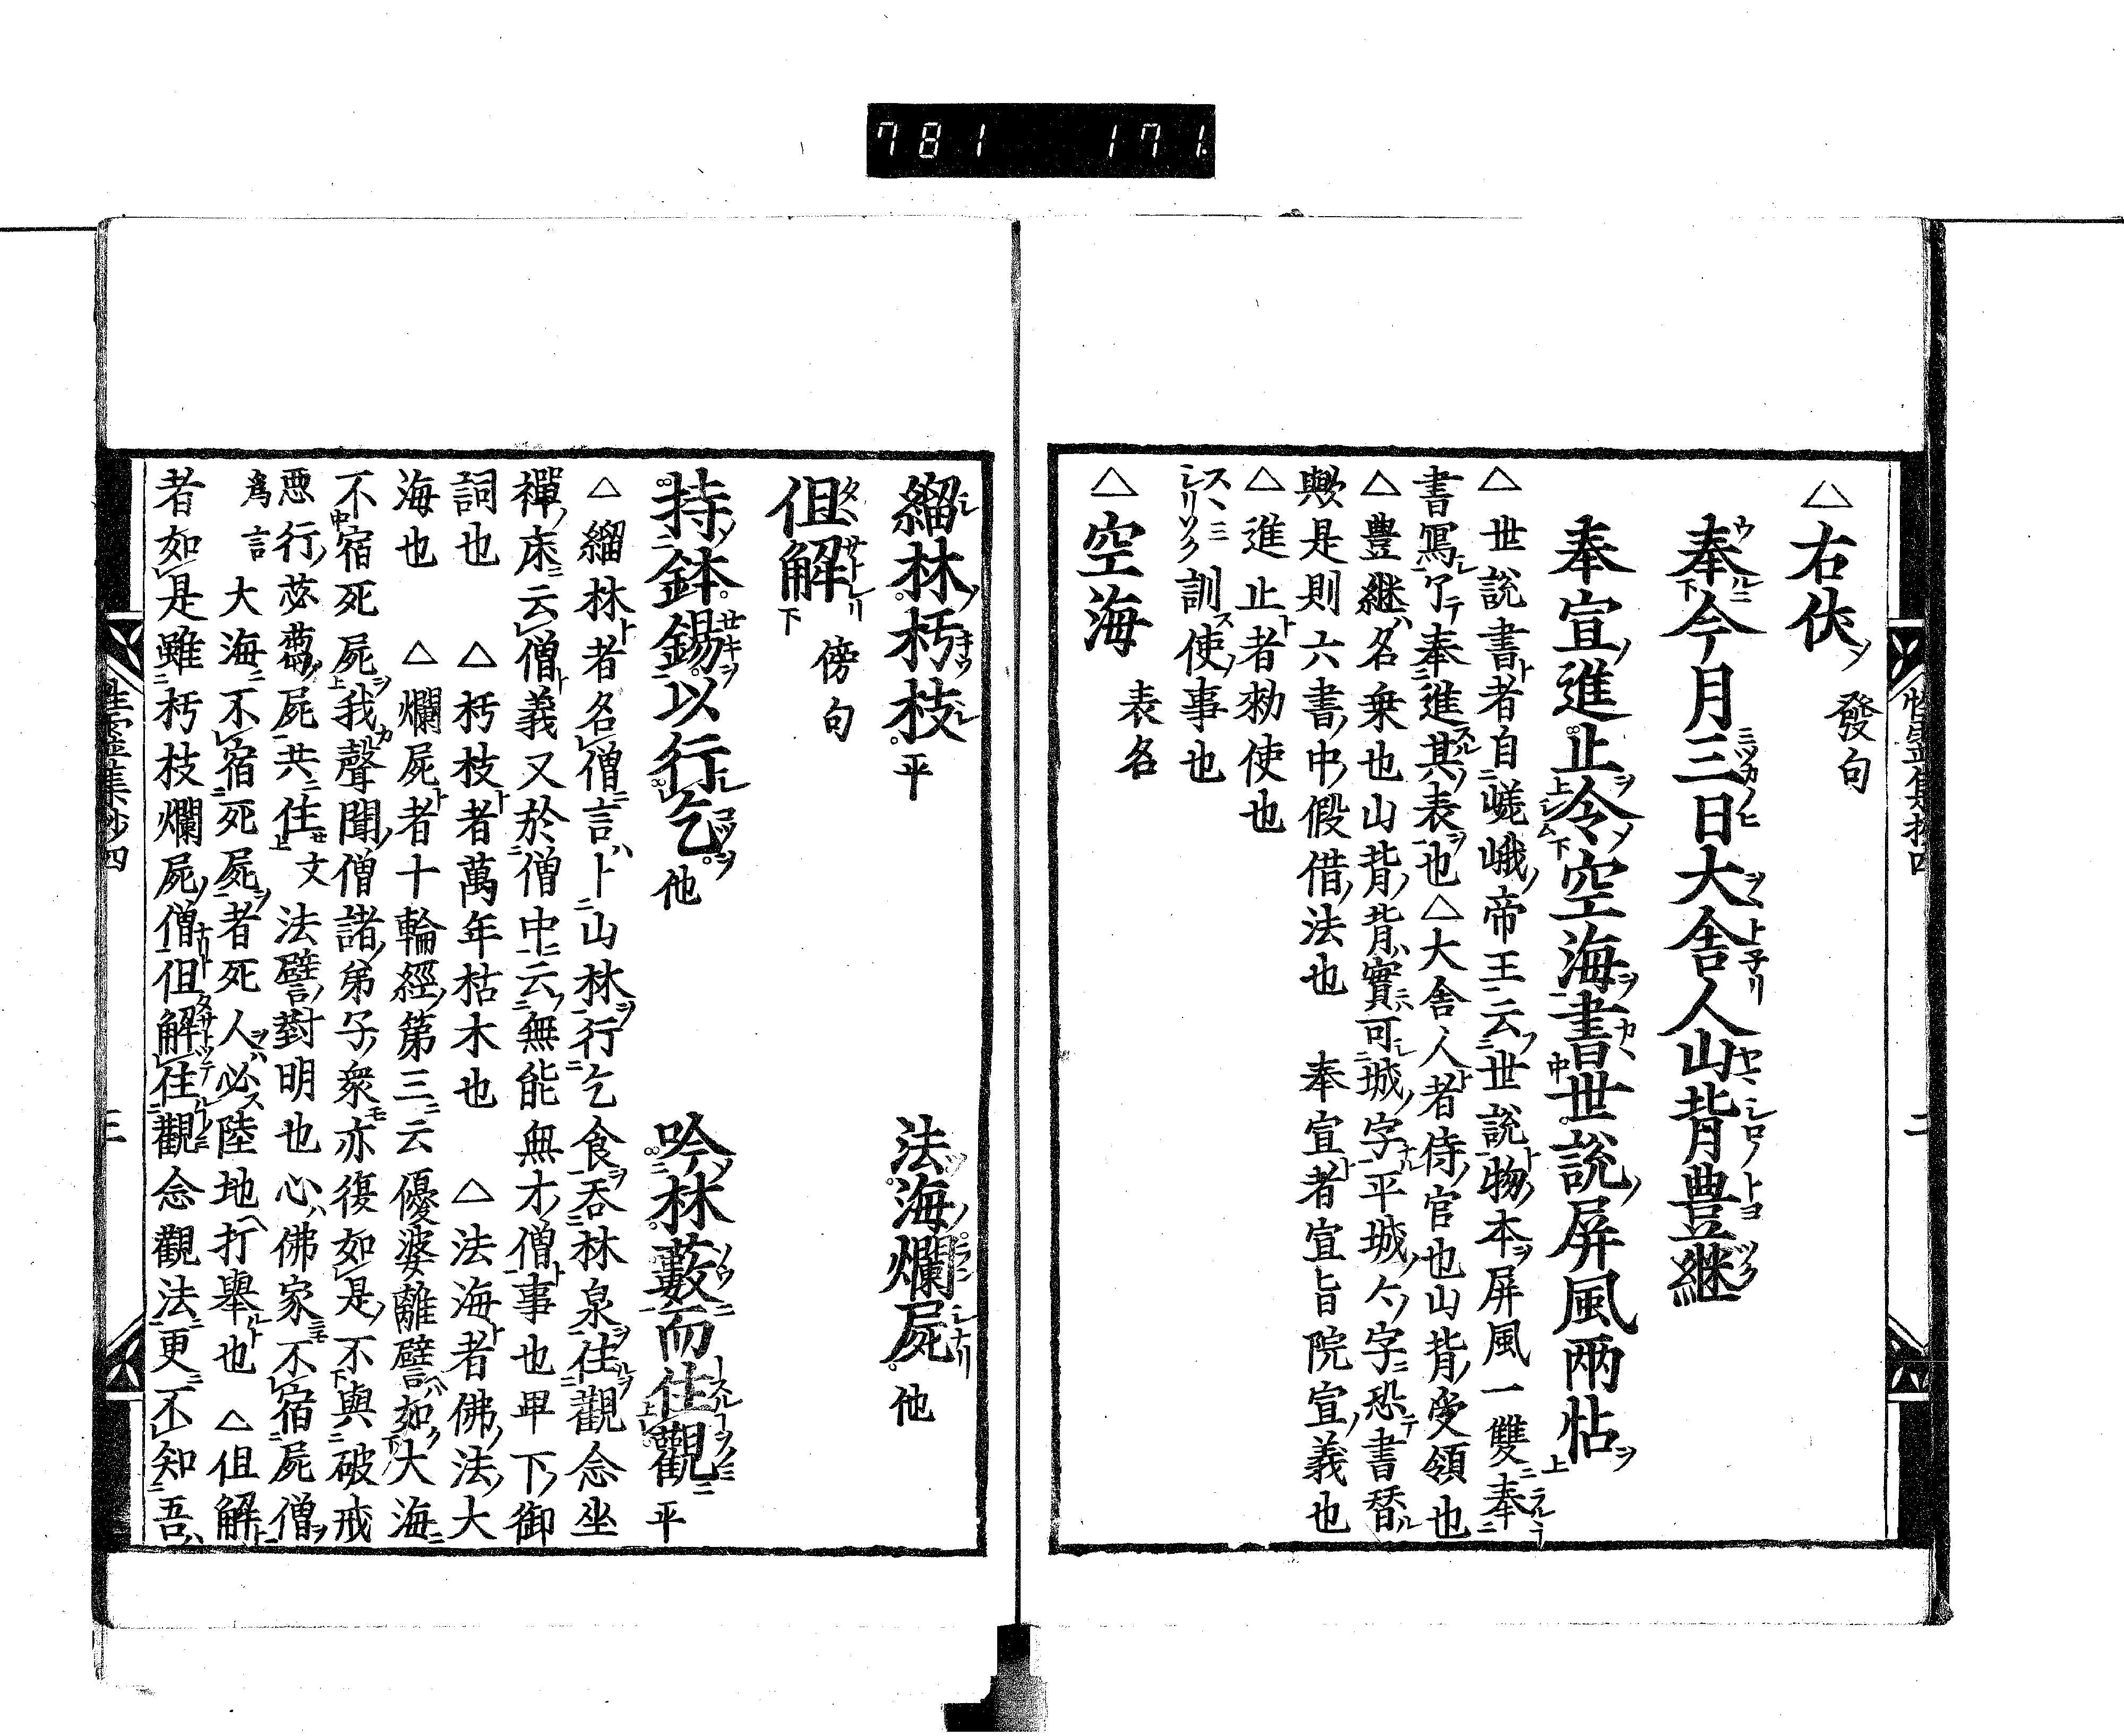 781 171
△右伏 發句
奉今月三日大舎人山背豊継
奉宣進止令空海書世説屏風兩帖
△世説書者自嵯峨帝王云世説物本屏風一雙奉
書寫了奉進其表也△大舎人者侍官也山背受領也
△豊継名乗也山背背實可城字平城今字恐書替
歟是則六書中假借法也 奉宣者宣旨院宣義也
△進止者勅使也
スヽミシリソク訓使事也
△空海 表名
緇林朽枝平 法海爛屍他
伹解 傍句
持鉢錫以行乞他 吟林藪而住觀平
△緇林者名僧言卜山林行乞食呑林泉住觀念坐
禪床云僧義又於僧中云無能無才僧事也畢下御
詞也 △朽枝者萬年枯木也 △法海者佛法大
海也 △爛屍者十輪經第三云優婆離譬如大海
不宿死屍我聲聞僧諸弟子衆亦復如是不與破戒
悪行苾蒭屍共住文 法譬對明也心佛家不宿屍僧
爲言 大海不宿死屍者死人必陸地打舉也 △伹解
者如是雖朽枝爛屍僧伹解住觀念觀法更不知吾
性霊集抄四
二
三